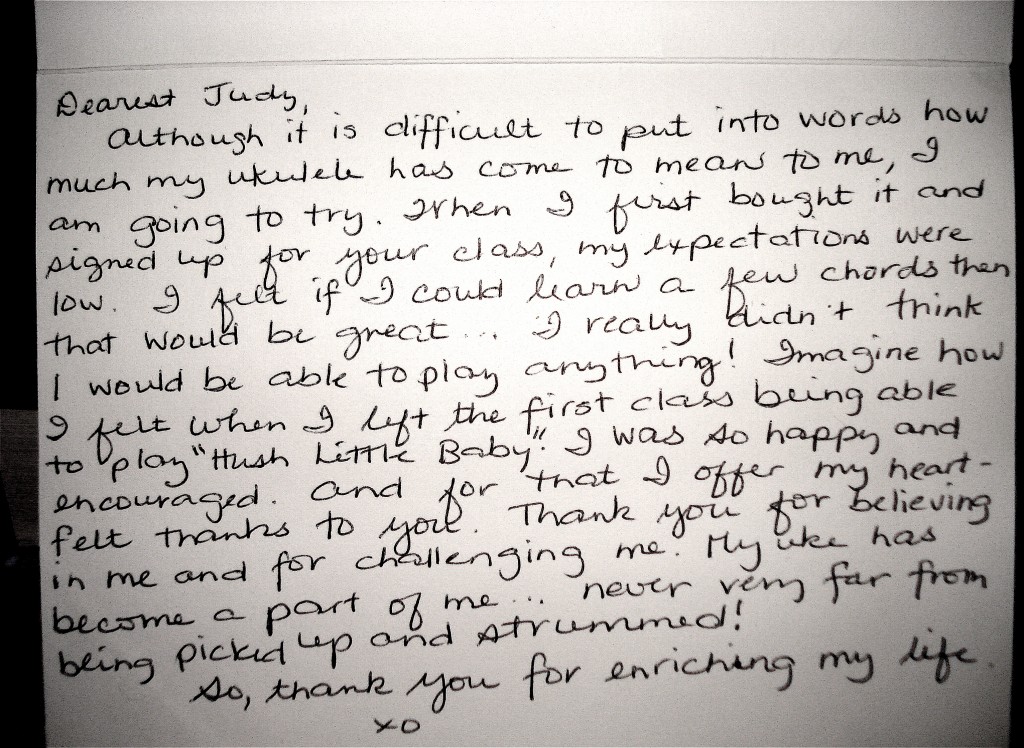 Dearest Judy,
Although it is difficult to put into words how
much my ukulele has come to mean to me, I
am going to try. When I first bought it and
signed up for your class, my expectations were
low. I felt if I could learn a few chords then
that would be great... I really didn't think
I would be able to play anything! Imagine how
I felt when I left the first class being able
to play "Hush Little Baby"! I was so happy and
encouraged. And for that I offer my heart-
felt thanks to you. Thank you for believing
in me and for challenging me. My uke has
become a part of me... never very far from
being picked up and strummed!
So, thank you for enriching my life.
xo